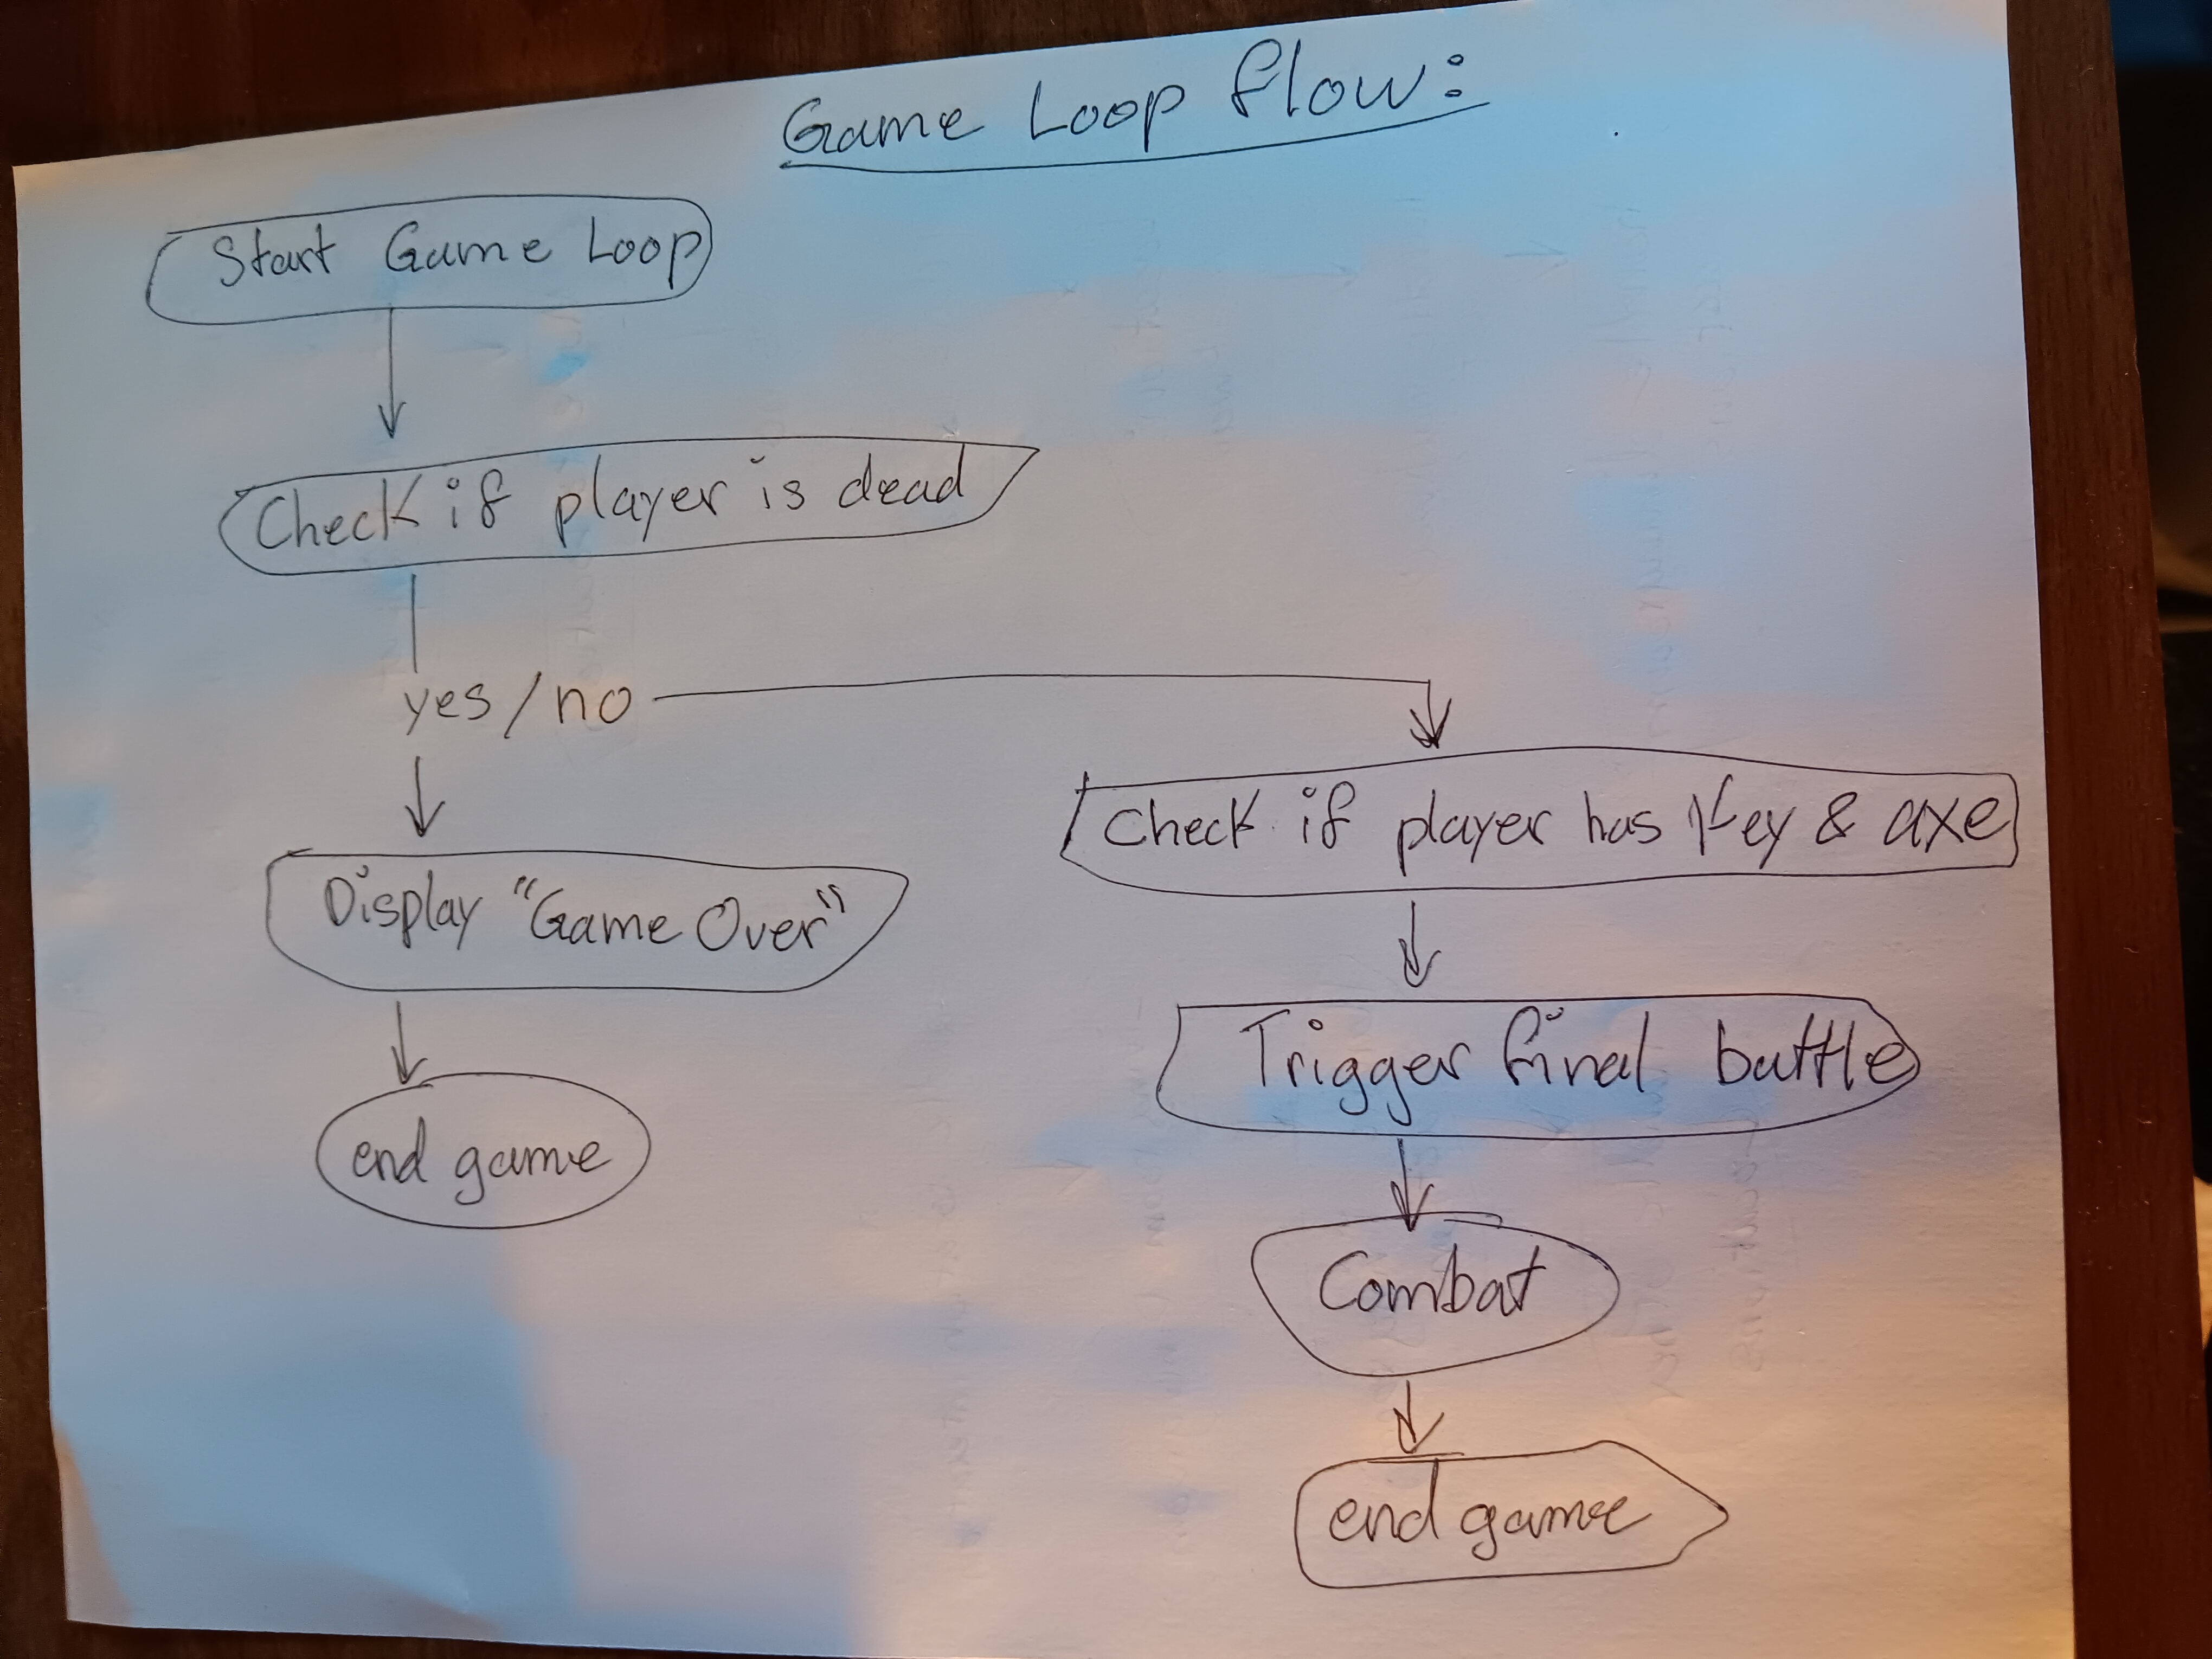 Game Loop Flow:
Start Game Loop
Check if player is dead
yes / no
Display "Game Over"
end game
Check if player has key & axe
Trigger final battle
Combat
end game